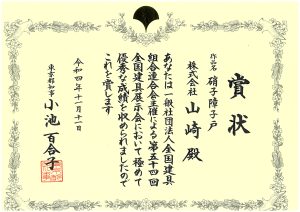 賞状
作品名 硝子障子戸
株式会社 山崎 殿
あなたは一般社団法人全国建具
組合連合会主催による第五十四回
全国建具展示会において極めて
優秀な成績を収められましたので
これを賞します
令和四年十一月十一日
東京都知事 小池百合子